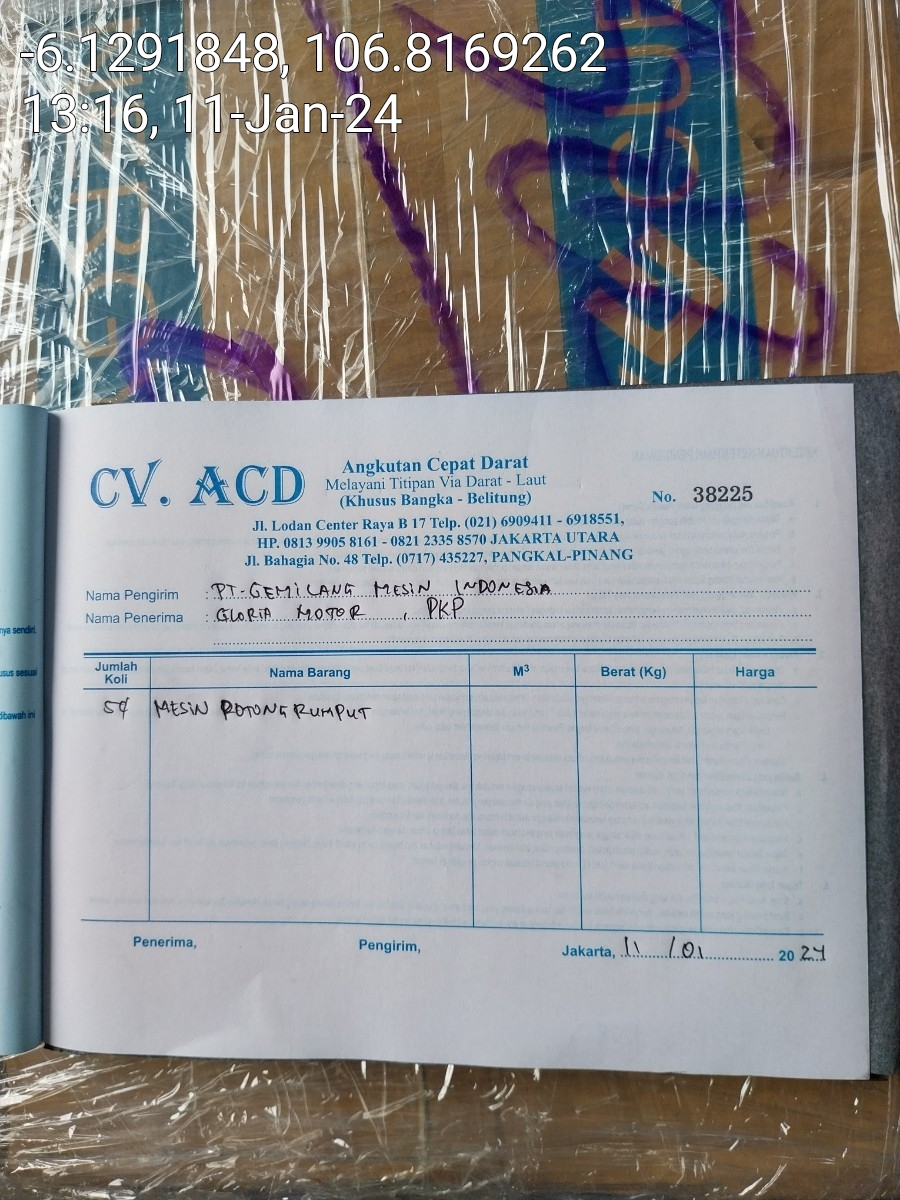 -6.1291848, 106.8169262
13:16, 11-Jan-24
CV. ACD
Angkutan Cepat Darat
Melayani Titipan Via Darat - Laut
(Khusus Bangka - Belitung)
No. 38225
Jl. Lodan Center Raya B 17 Telp. (021) 6909411 - 6918551,
HP. 0813 9905 8161 - 0821 2335 8570 JAKARTA UTARA
Jl. Bahagia No. 48 Telp. (0717) 435227, PANGKAL-PINANG
Nama Pengirim : PT. GEMILANG MESIN INDONESIA
Nama Penerima : GLORIA MOTOR, PKP
Jumlah Koli Nama Barang M³ Berat (Kg) Harga
MESIN POTONG RUMPUT
Penerima, Pengirim, Jakarta, 11 / 01 2024
nya sendiri.
usus sesuai
dibawah ini